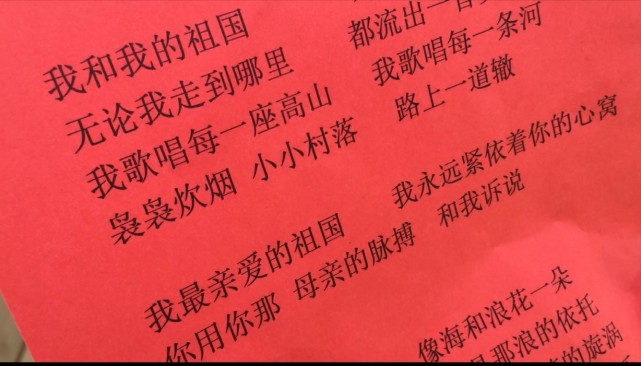 我和我的祖国
无论我走到哪里 都流出一首
我歌唱每一座高山 我歌唱每一条河
袅袅炊烟 小小村落 路上一道辙
我最亲爱的祖国 我永远紧依着你的心窝
你用你那 母亲的脉搏 和我诉说
像海和浪花一朵
那浪的依托
的旋涡